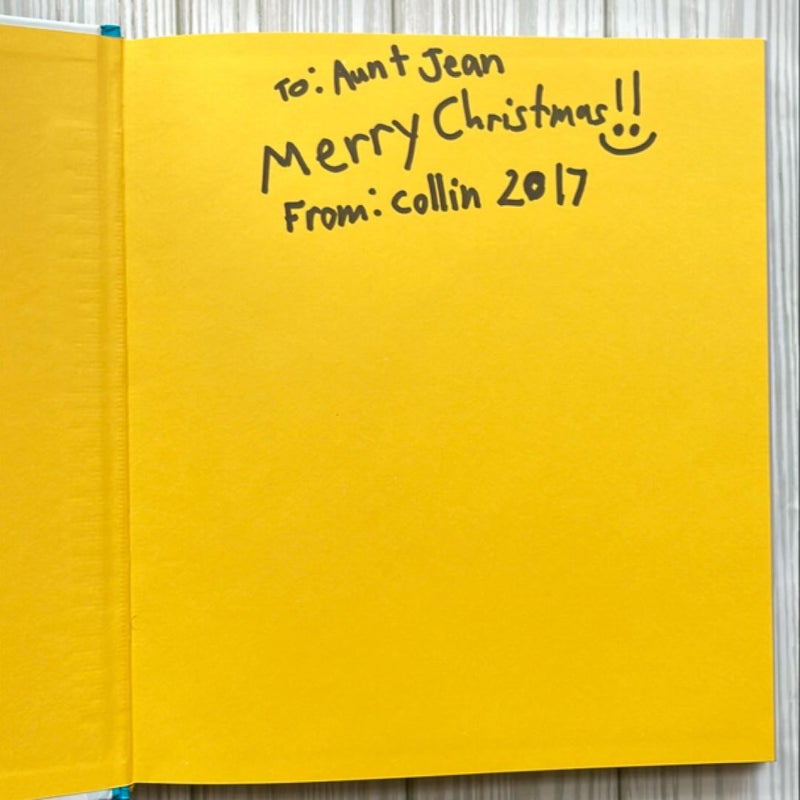 To: Aunt Jean
Merry Christmas!!
From: collin 2017